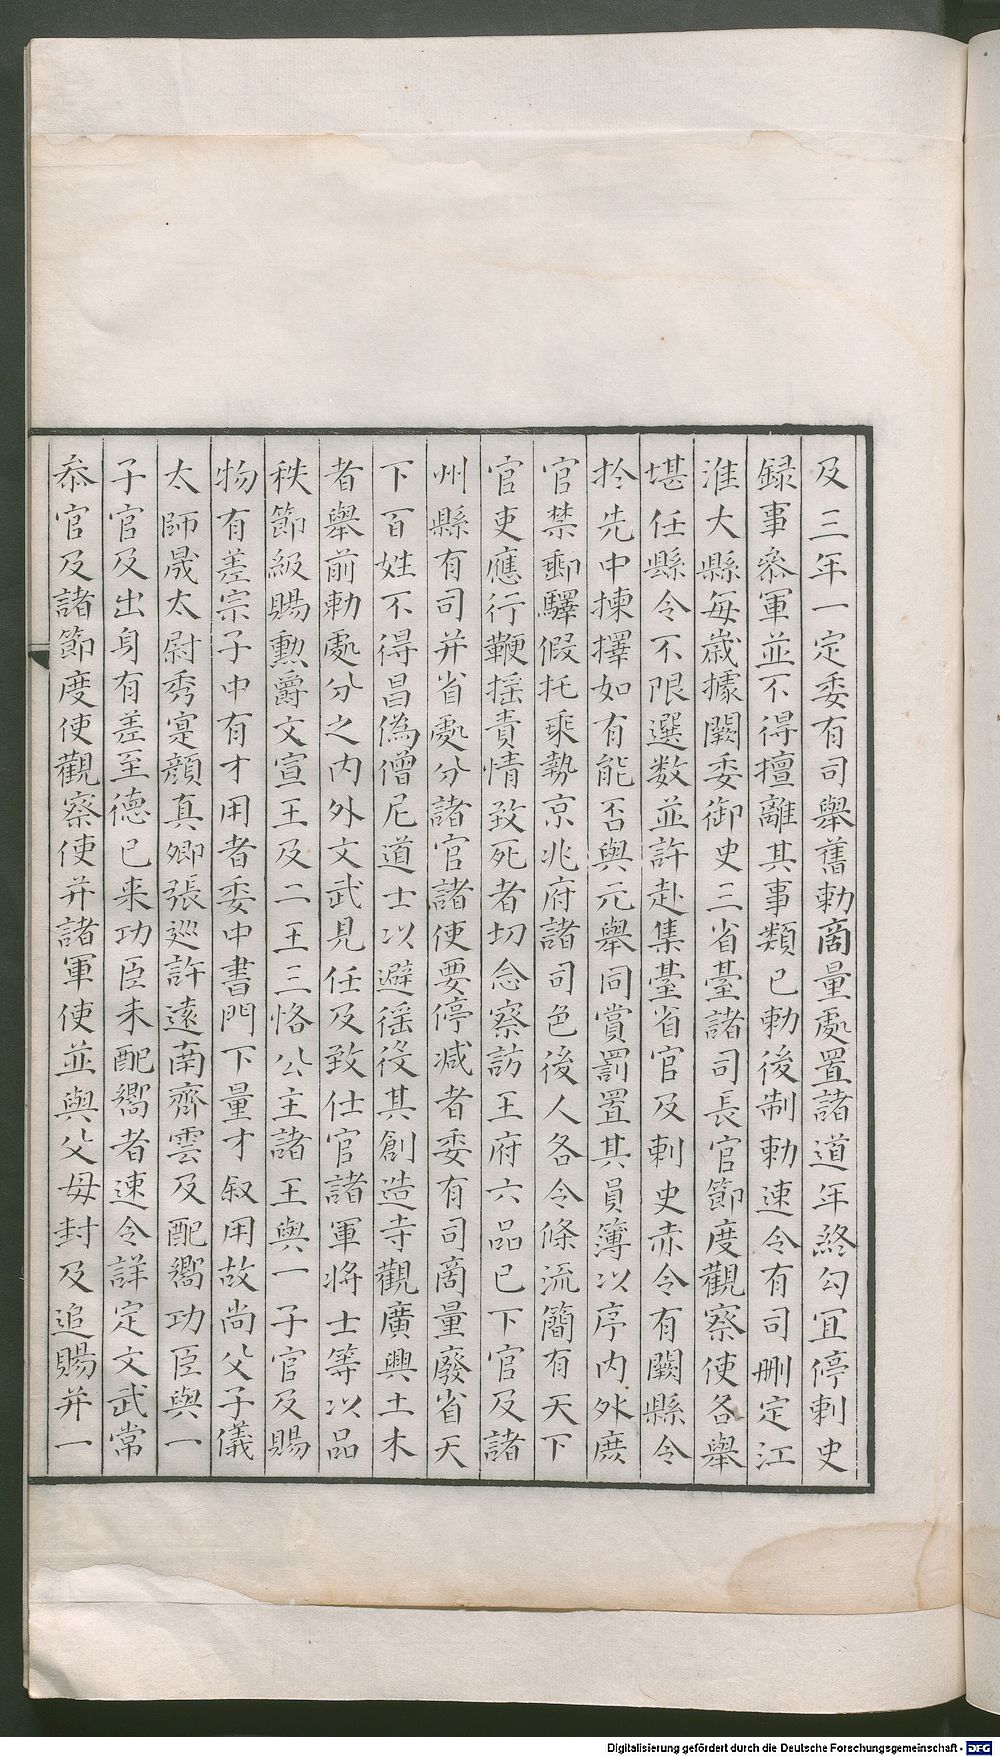 及三年一定委有司舉舊勅商量處置諸道年終勾宜停刺史
録事叅軍並不得擅離其事類已勅後制勅速令有司刪定江
淮大縣每歲據闕委御史三省臺諸司長官節度觀察使各舉
堪任縣令不限選数並許赴集臺省官及刺史赤令有闕縣令
扵先中揀擇如有能否與元舉同賞罰置其員簿以序內外庶
官禁郵驛假托乘勢京兆府諸司色後人各令條流簡有天下
官吏應行鞭揺責情致死者切念察訪王府六品已下官及諸
州縣有司并省處分諸官諸使要停减者委有司商量廢省天
下百姓不得昌偽僧尼道士以避徭役其創造寺觀廣興土木
者舉前勅處分之內外文武見任及致仕官諸軍將士等以品
秩節級賜勲爵文宣王及二王三恪公主諸王與一子官及賜
物有差宗子中有才用者委中書門下量才叙用故尚父子儀
太師晟太尉秀寔顔真卿張巡許遠南齊雲及配嚮功臣與一
子官及出身有差至德已来功臣未配嚮者速令詳定文武常
叅官及諸節度使觀察使并諸軍使並與父母封及追賜并一
Digitalisierung gefördert durch die Deutsche Forschungsgemeinschaft - DFG